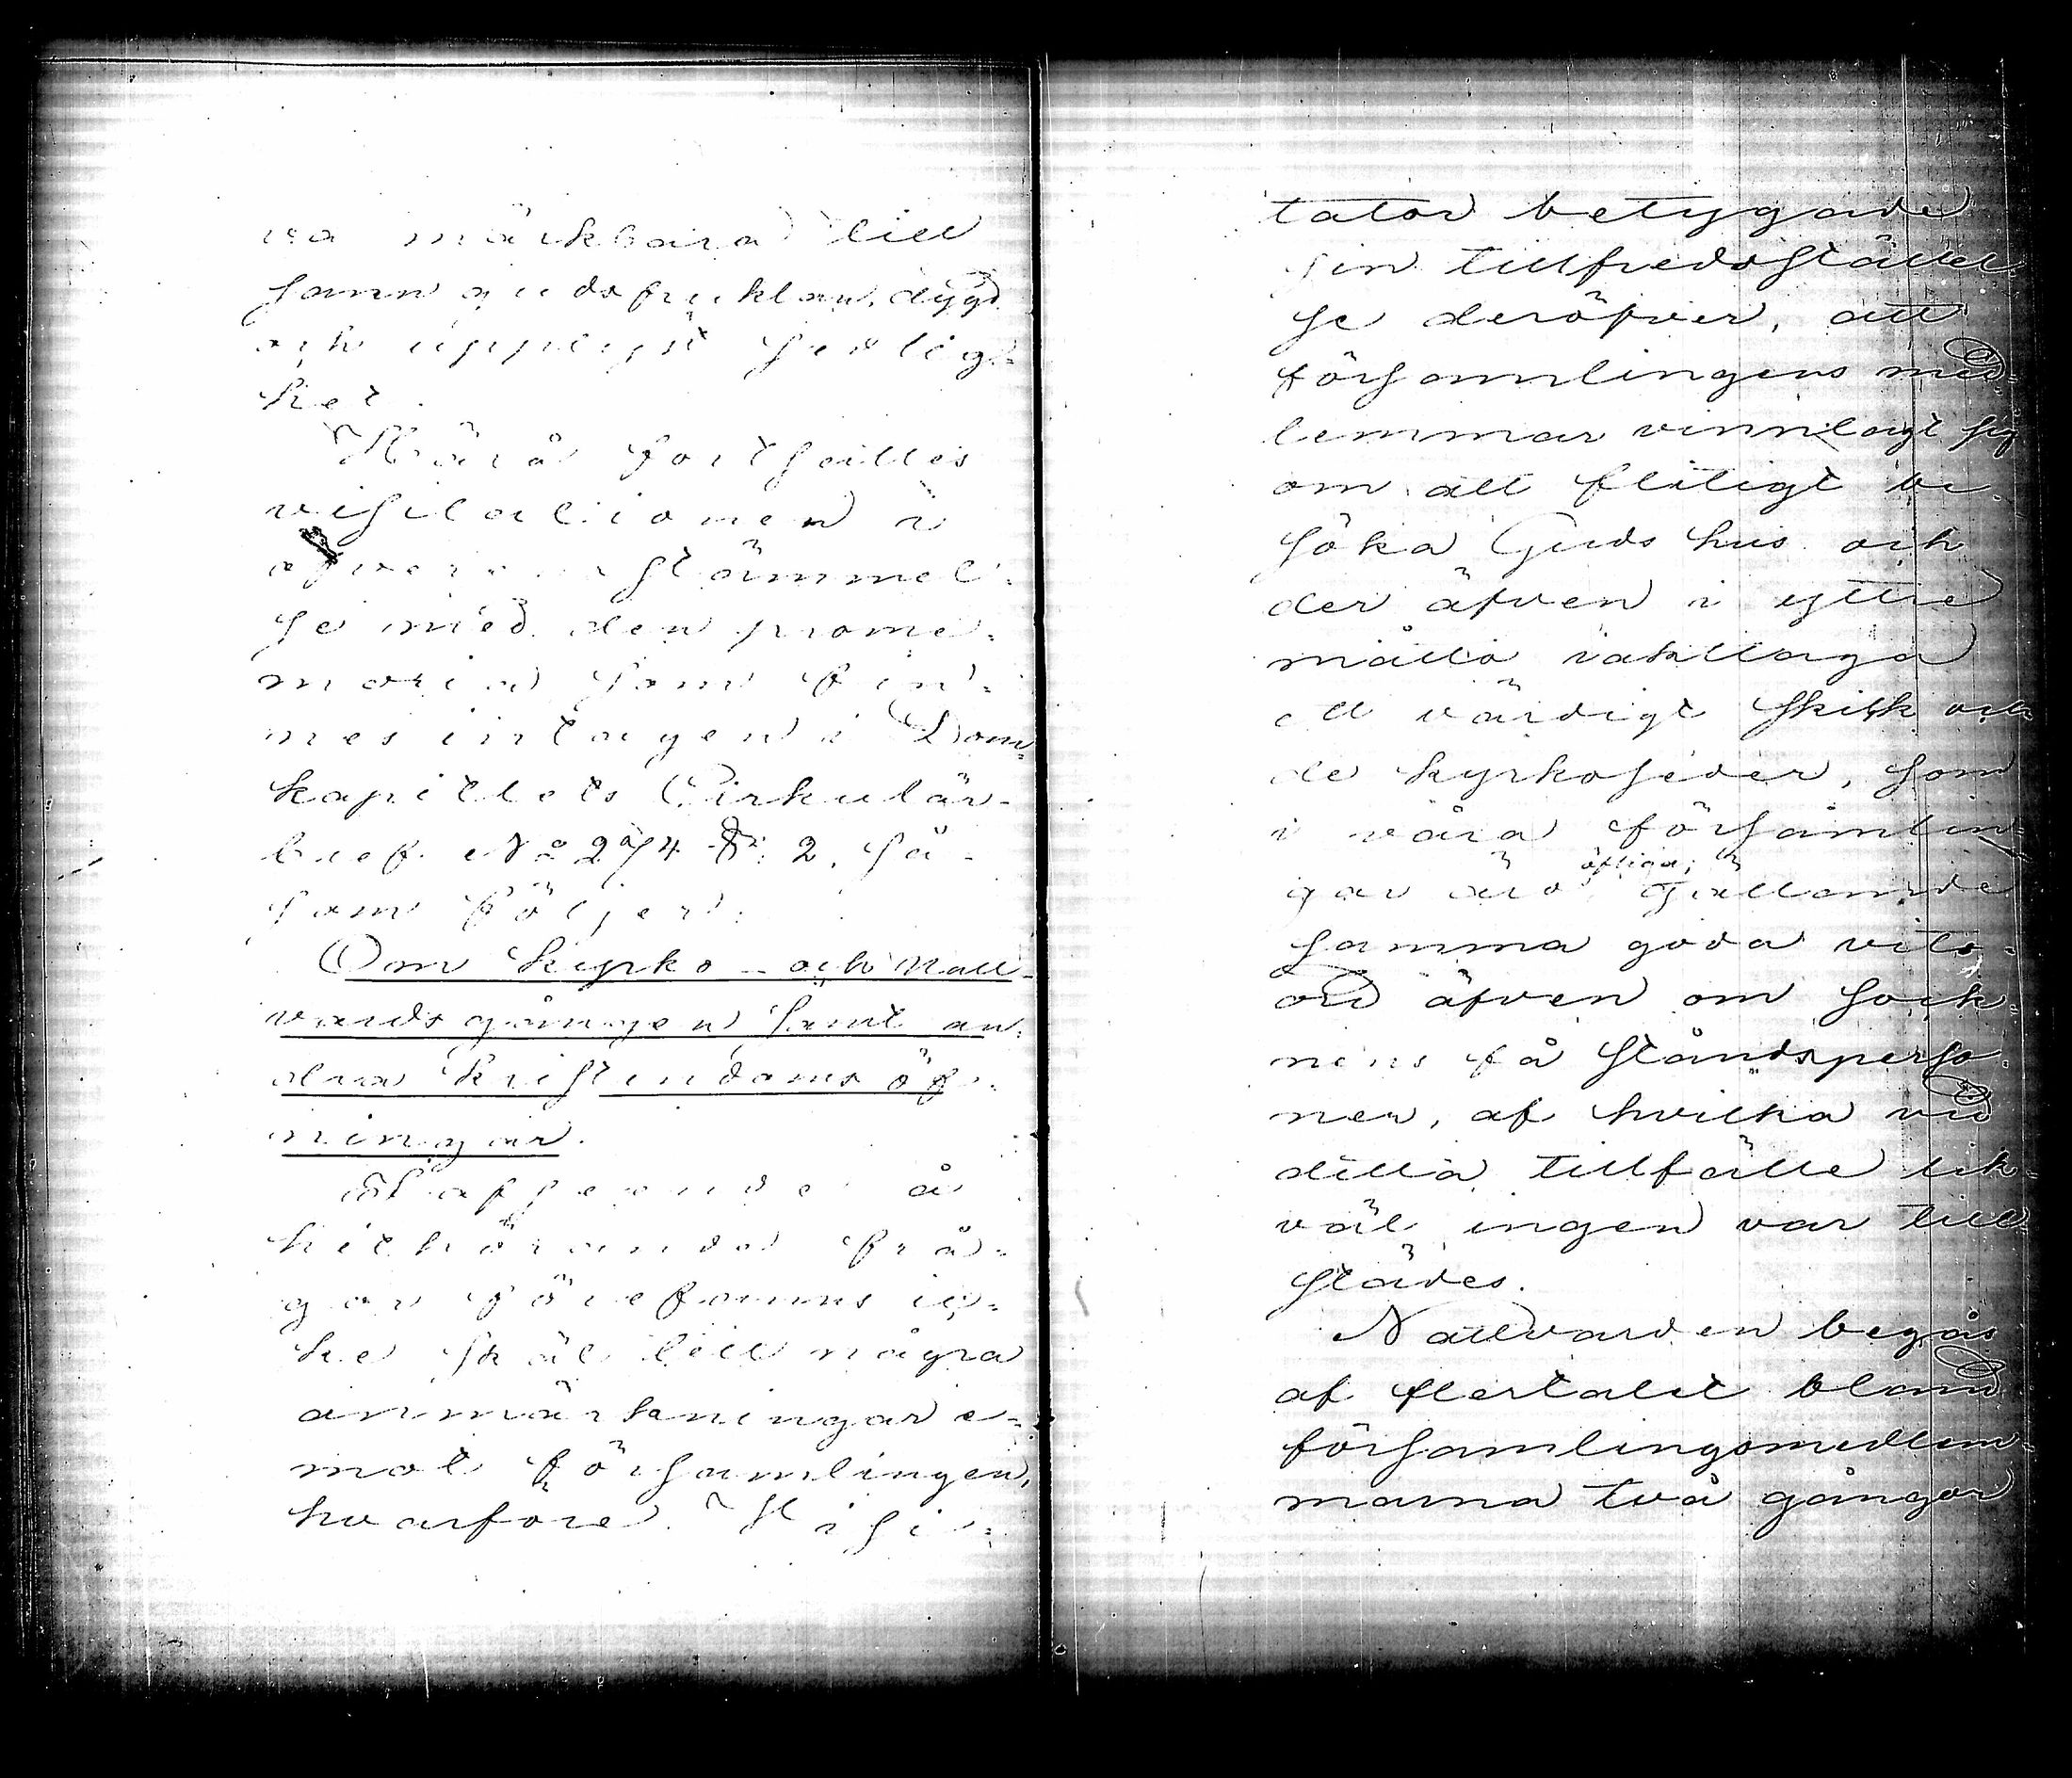 va märkbara till
sann gudsfruktan, dygd
och upplyst sedlig-
het.
Härå fortsattes
visitationen i
öfverensstämmel-
se med den prome-
moria som fin-
nes intagen i Dom-
kapitlets Cirkulär-
bref No 274 § 2, så-
som följer:
Om kyrko- och Natt-
vardsgången samt an-
dra kristendomsöf-
ningar.
I afseende å
hithörande frå-
gor förefanns ic-
ke skäl till några
anmärkningar e-
mot församlingen,
hvarföre Visi-
tator betygade
sin tillfredsställel-
se deröfver, att
församlingens med-
lemmar vinnlagt sig
om att flitigt be-
söka Guds hus och
der äfven i yttre
måtto iakttaga
ett värdigt skick och
de kyrkoseder, som
i våra församlin-
gar äro öfliga; gällande
samma goda vits-
ord äfven om sock-
nens få ståndsperso-
ner, af hvilka vid
detta tillfälle lik-
väl ingen var till-
städes.
Nattvarden begås
af flertalet bland
församlingsmedlem-
marna två gångor